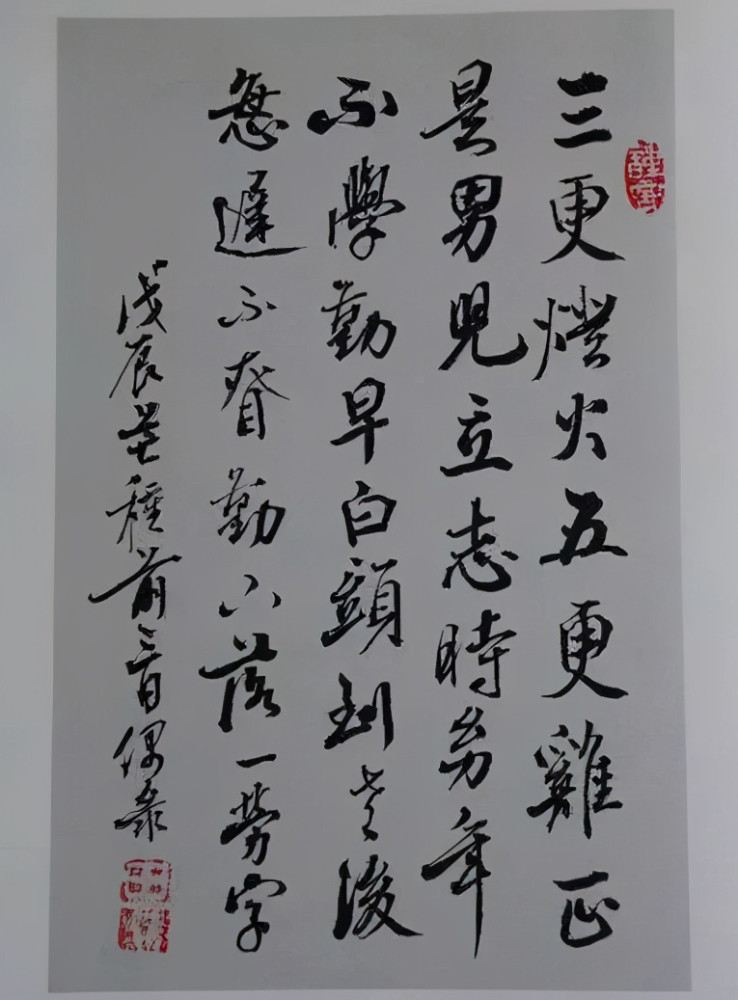 三更燈火五更雞正
是男兒立志時幼年
不學勤早白頭到老後
悔遲不看勤落一勞字
戊辰芒種前三日偶錄